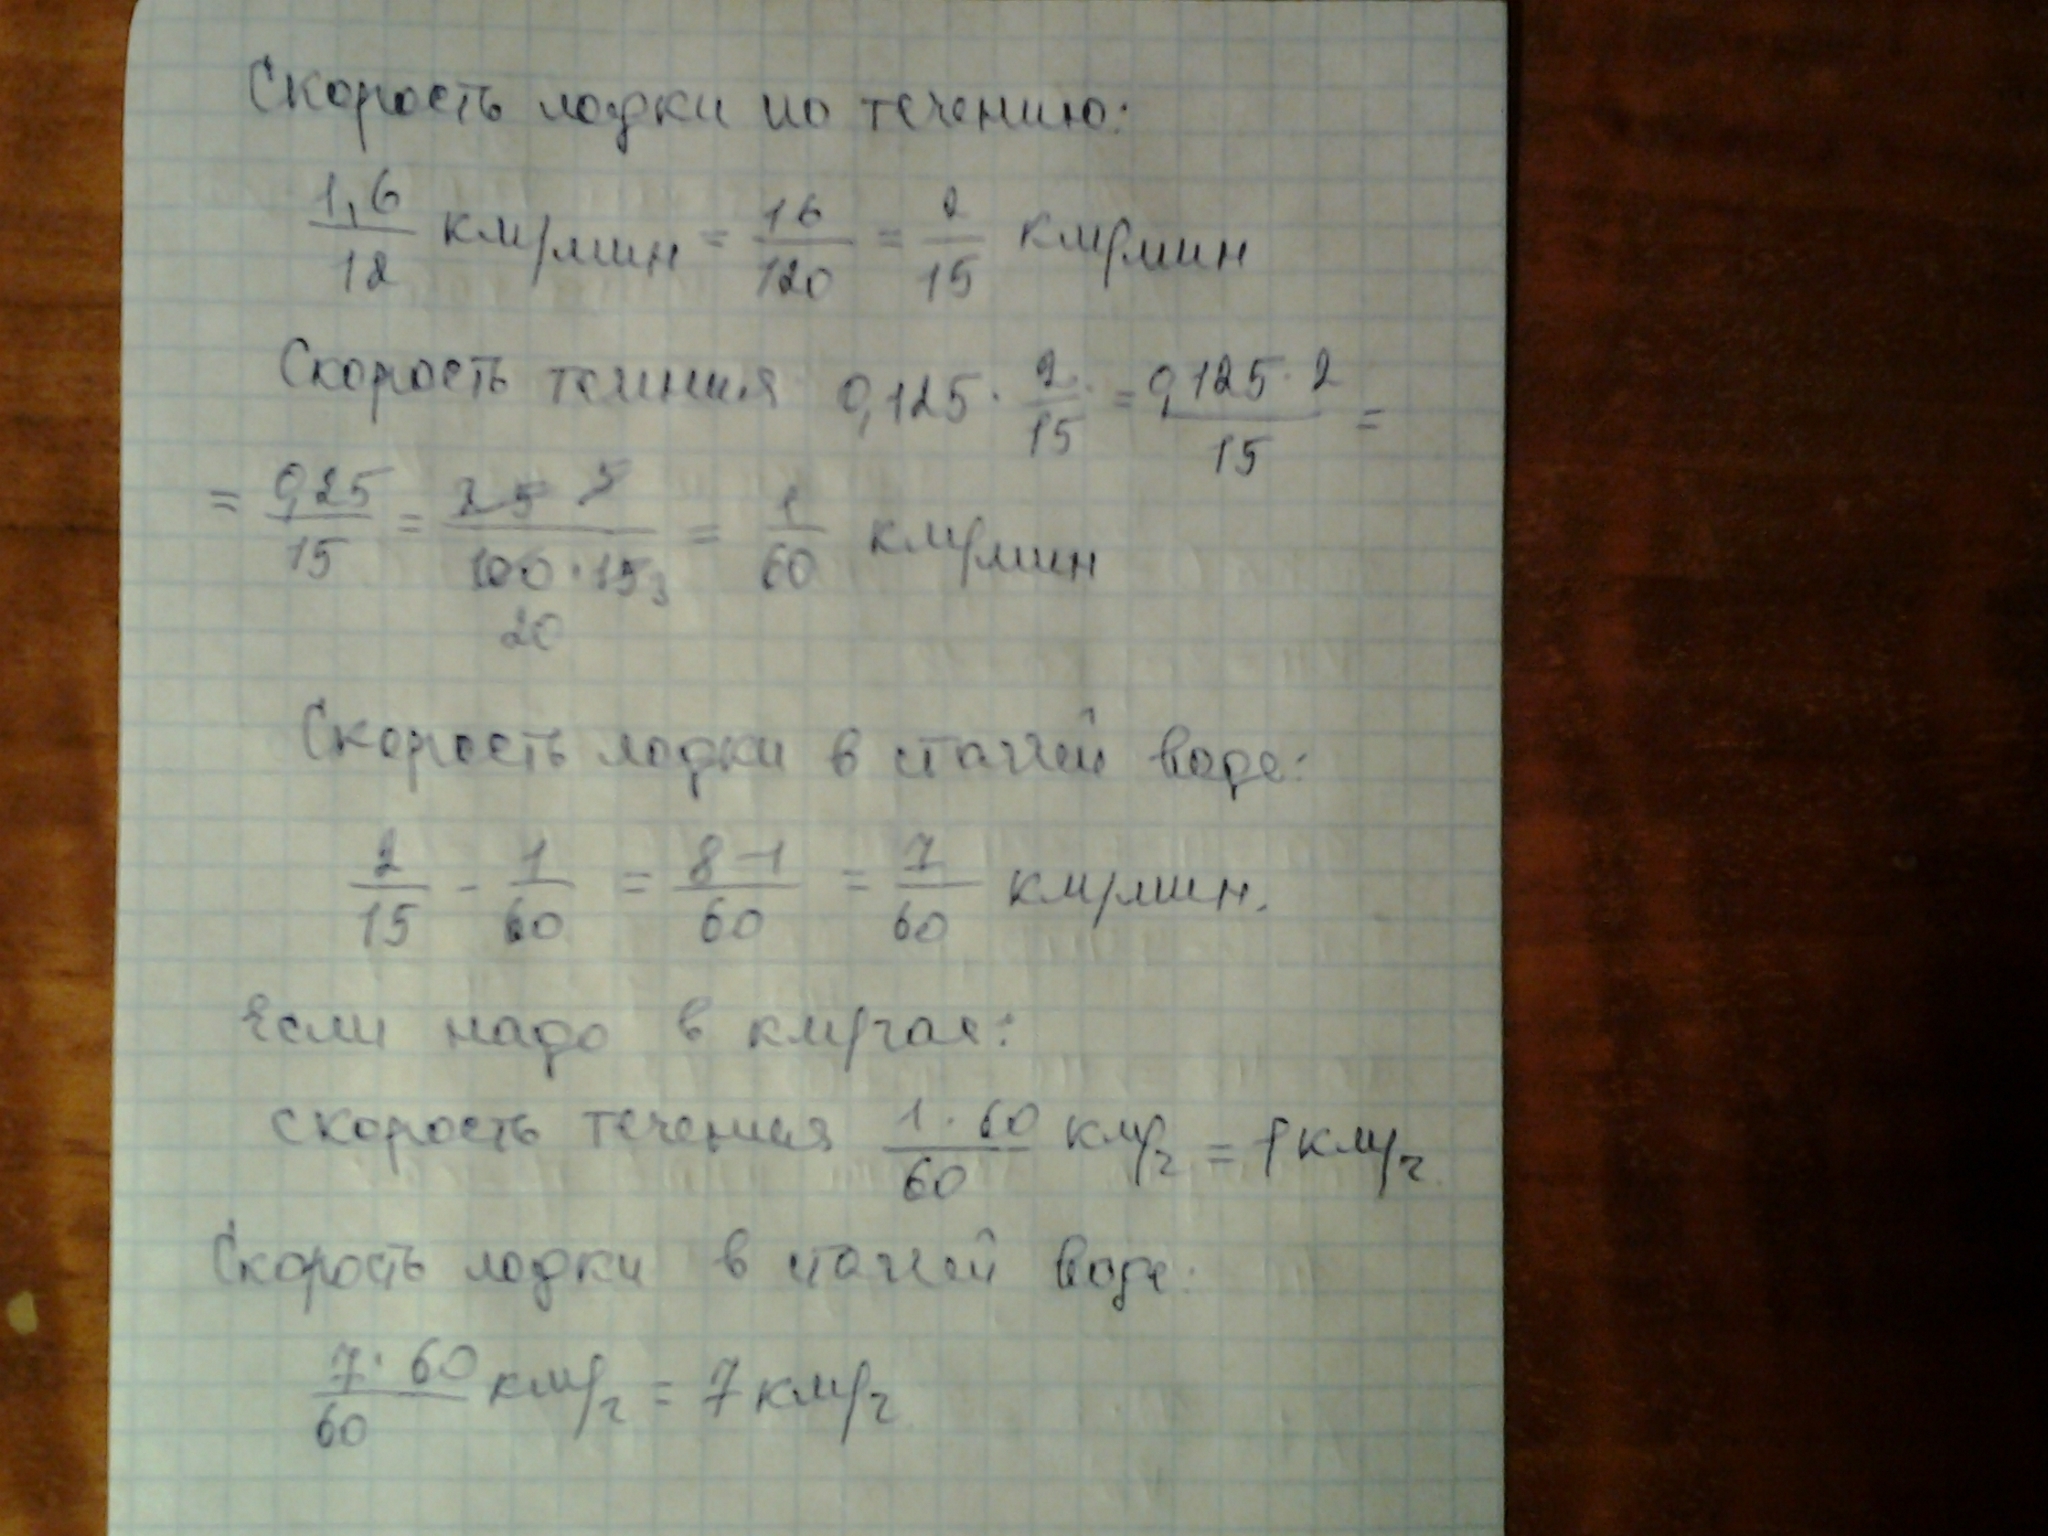 Скорость лодки по течению:
1,6/12 км/мин = 16/120 = 2/15 км/мин
Скорость течния 0,125 · 2/15 = 0,125 · 2/15 =
= 0,25/15 = 25 5/100 · 15 3 = 1/60 км/мин
20
Скорость лодки в стачей воде:
2/15 - 1/60 = 8-1/60 = 7/60 км/мин.
Если надо в км/час:
скорость течения 1 · 60/60 км/ч = 1 км/ч
Скорость лодки в стачей воде:
7 · 60/60 км/ч = 7 км/ч